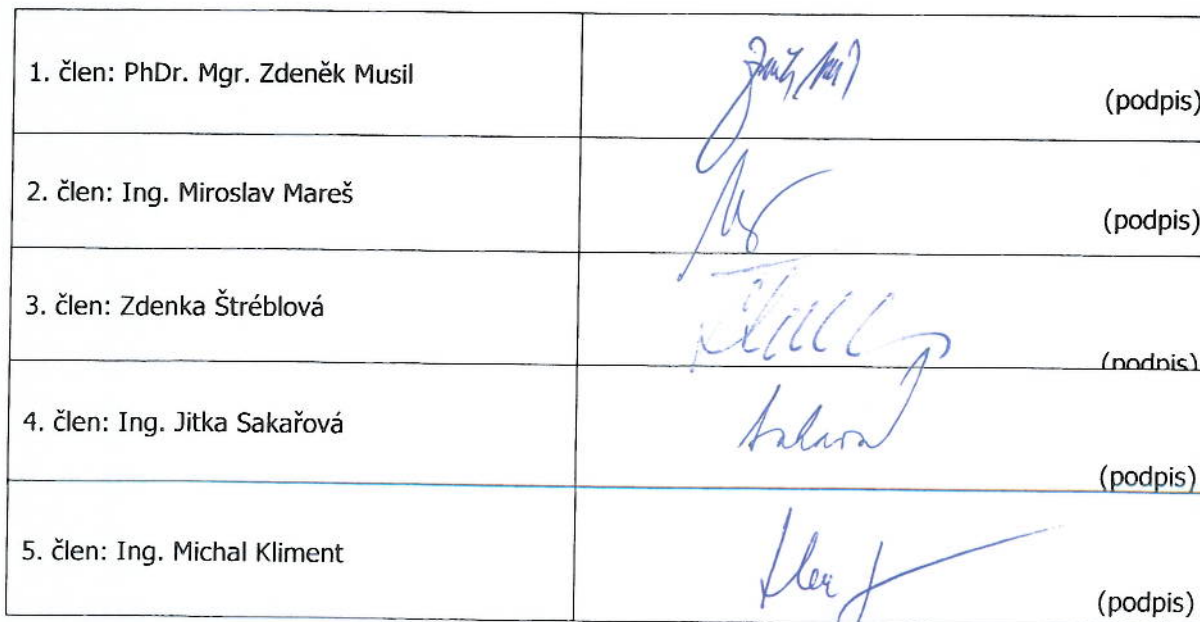 1. člen: PhDr. Mgr. Zdeněk Musil
(podpis)
2. člen: Ing. Miroslav Mareš
(podpis)
3. člen: Zdenka Štréblová
(podpis)
4. člen: Ing. Jitka Sakařová
(podpis)
5. člen: Ing. Michal Kliment
(podpis)